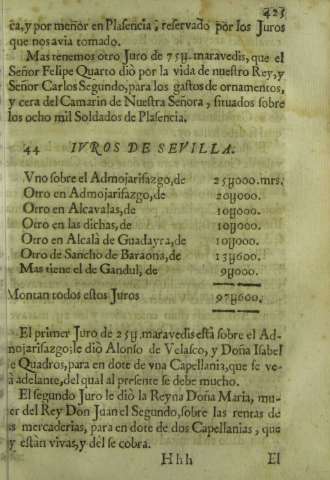 425
ca, y por menor en Plasencia, reservado por los Juros
que nos avia tomado.
Mas tenemos otro Juro de 75y. maravedis, que el
Señor Felipe Quarto diò por la vida de nuestro Rey, y
Señor Carlos Segundo, para los gastos de ornamentos,
y cera del Camarin de Nuestra Señora, situados sobre
los ocho mil Soldados de Plasencia.
44 IVROS DE SEVILLA.
Vno sobre el Admojarifazgo, de 25y000. mrs.
Otro en Admojarifazgo, de 20y000.
Otro en Alcavalas, de 10y000.
Otro en las dichas, de 10y000.
Otro en Alcalà de Guadayra, de 10y000.
Otro de Sancho de Baraona, de 13y600.
Mas tiene el de Gandul, de 9y000.
Montan todos estos Juros 97y600.
El primer Juro de 25y. maravedis està sobre el Ad-
mojarifazgo; le diò Alonso de Velasco, y Doña Isabel
e Quadros, para en dote de vna Capellania, que se ve-
à adelante, del qual al presente se debe mucho.
El segundo Juro le diò la Reyna Doña Maria, mu-
er del Rey Don Juan el Segundo, sobre las rentas de
s mercaderias, para en dote de dos Capellanias, que
y estàn vivas, y dèl se cobra.
Hhh El